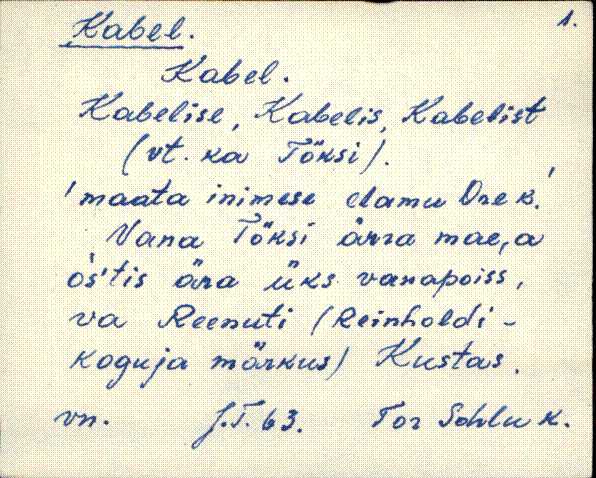 1.
Kabel.
Kabel.
Kabelise, Kabelis, Kabelist
(vt. ka Tõksi).
'maata inimese elamu Ore k.'
Vana Tõksi ärra mae,a
òs'tis ära üks vanapoiss,
va Reenuti (Reinholdi -
koguja märkus) Kustas.
vn. J.T. 63. Tor Sohlu k.